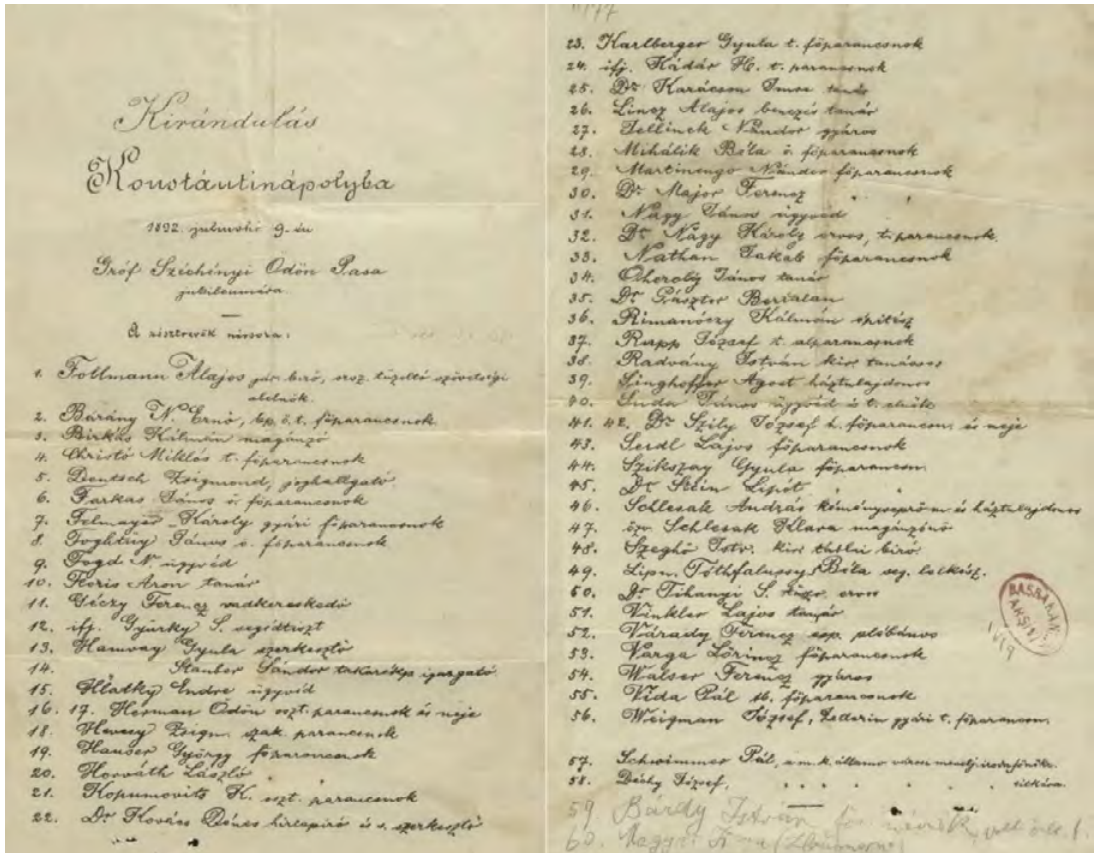 Kirándulás
Konstántinápolyba
1892. julius hó 9-én
Gróf Széchényi Ödön Pasa
jubileumára.
A résztvevők névsora:
1. Follmann Alajos bíró, orsz. tűzoltó szövetségi
alelnök.
2. Bárány N. Ernő, bp. ö. t. főparancsnok.
3. Birkás Kálmán magánzó
4. Christó Miklós t. főparancsnok
5. Deutsch Zsigmond, joghallgató
6. Farkas János ö. főparancsnok
7. Felmayer Károly gyári főparancsnok
8. János ö. főparancsnok
9. N. ügyvéd
10. Áron tanár
11. Géczy Ferencz vadkereskedő
12. ifj. Gyürky S. segédtiszt
13. Hamvay Gyula szerkesztő
14. Stauber Sándor takarékp. igazgató
15. Hlatky Endre ügyvéd
16. 17. Herman Ödön oszt. parancsnok és neje
18. Hevesy Zsigm. szak. parancsnok
19. Hauser György főparancsnok
20. Horváth László "
21. Kopumovits K. oszt. parancsnok
22. Dr Kovács Dénes hirlapiró és s. szerkesztő
23. Karlberger Gyula t. főparancsnok
24. ifj. Kádár H. t. parancsnok
25. Dr Karácson Imre tanár
26. Lincz Alajos benczés tanár
27. Jellinek Nándor gyáros
28. Mihálik Béla ö. főparancsnok
29. Martinengo Nándor főparancsnok
30. Dr Major Ferencz " "
31. Nagy János ügyvéd
32. Dr Nagy Károly orvos, t. parancsnok.
33. Nathan Jakab főparancsnok
34. János tanár
35. Dr Pásztor Bertalan
36. Rimanóczy Kálmán épitész
37. Rupp József t. alparancsnok
38. Radvány István kir tanácsos
39. Singhoffer Ágost háztulajdonos
40. Suda János ügyvéd és t. elnök
41. 42. Dr Szily József t. főparancsn. és neje
43. Seidl Lajos főparancsnok
44. Szikszay Gyula főparancsn.
45. Dr Stein Lipót " "
46. Schlesak András kéményseprő m és háztulajdonos
47. özv. Schlesak Klára magánzónő
48. Szeghő Istv. kir táblai biró
49. Lipn. Tóthfalussy Béla seg. lelkész.
50. Dr Tihanyi S. orvos
51. Vinkler Lajos tanár
52. Várady Ferencz esp. plébános
53. Varga Lőrincz főparancsnok
54. Walser Ferencz gyáros
55. Vida Pál főparancsnok
56. Weigman József, gyári t. főparancsn.
57. Schwimmer Pál, a m. k. államv. városi menetj. irodafőnöke.
58. Déchy József, " " " " " titkára.
59. Bárdy István
60. Magyar
BAŞBAKANLIK
ARŞİVİ